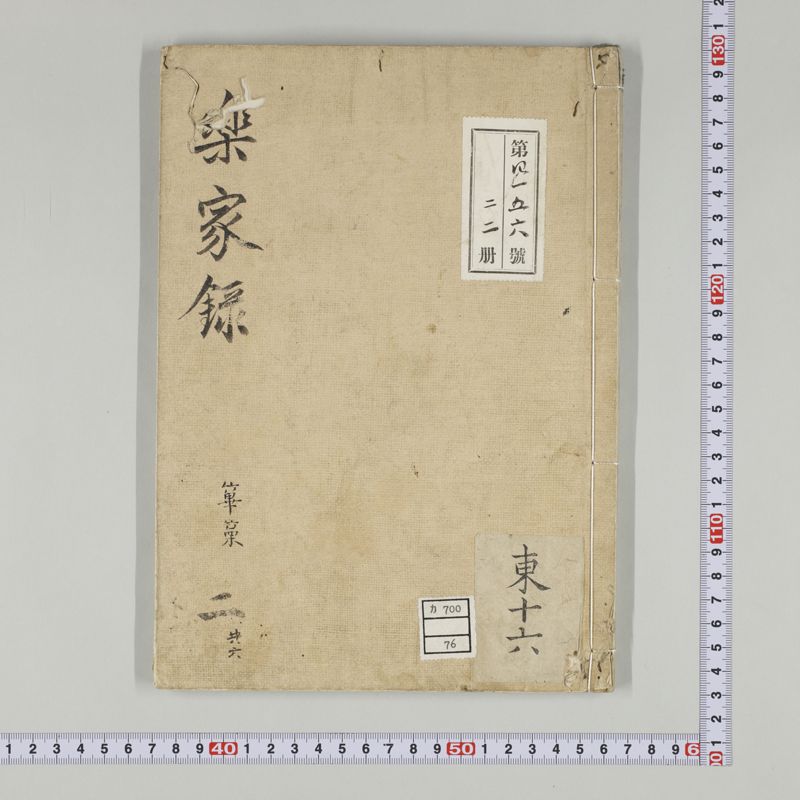 楽家録
篳篥
二
共六
第四一五六號
二二冊
東十六
カ 700
76
1 2 3 4 5 6 7 8 9 40 1 2 3 4 5 6 7 8 9 50 1 2 3 4 5 6 7 8 9 6
2 1 130 9 8 7 6 5 4 3 2 1 120 9 8 7 6 5 4 3 2 1 110 9 8 7 6 5 4 3 2 1